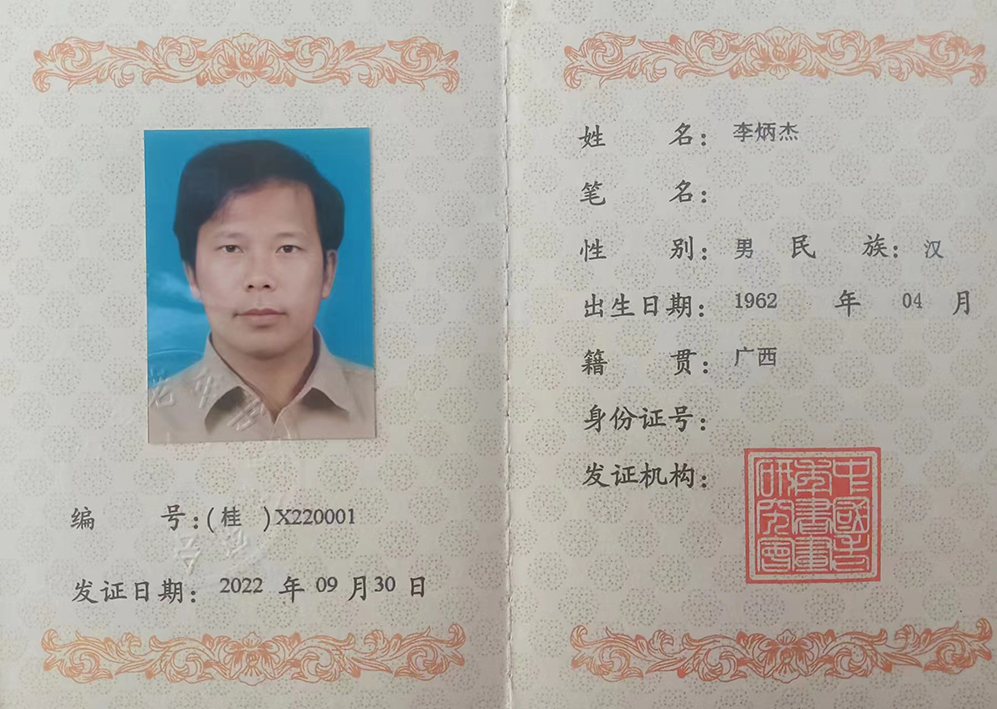 编 号:(桂 )X220001
发证日期: 2022 年 09 月 30 日
姓 名: 李炳杰
笔 名:
性 别: 男 民 族: 汉
出生日期: 1962 年 04 月
籍 贯: 广西
身份证号:
发证机构:
中國老
年書畫
研究會